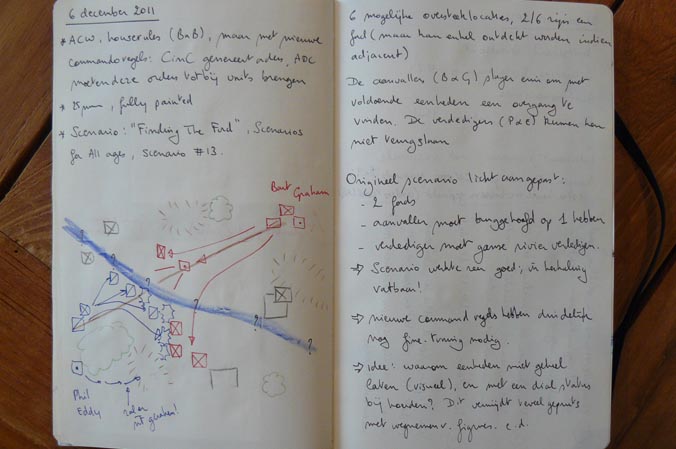 6 december 2011
* ACW, houserules (BaB), maar met nieuwe
commandoregels: CinC genereert orders, ADC
moeten deze orders tot bij units brengen
* 15mm, fully painted
* Scenario: "Finding The Ford", Scenarios
for All ages, Scenario #13.
Bart Graham
? ? ? ?? ?
Phil
Eddy
6 mogelijke oversteeklocaties, 2/6 zijn een
ford (maar kan enkel ontdekt worden indien
adjacent)
De aanvallers (B&G) slagen erin om met
voldoende eenheden een overgang te
vinden. De verdedigers (P&E) kunnen hen
niet terugslaan
Origineel scenario licht aangepast:
- 2 fords
- aanvaller moet bruggehoofd op 1 hebben
- verdediger moet ganse rivier verdedigen.
⇒ Scenario werkte zeer goed, is herhaling
vatbaar!
⇒ nieuwe command regels hebben duidelijk
nog fine-tuning nodig.
⇒ idee: waarom eenheden niet geheel
laten (visueel), en met een dial status
bij houden? Dit vermijdt teveel gepruts
met wegnemen v. figures. e.d.